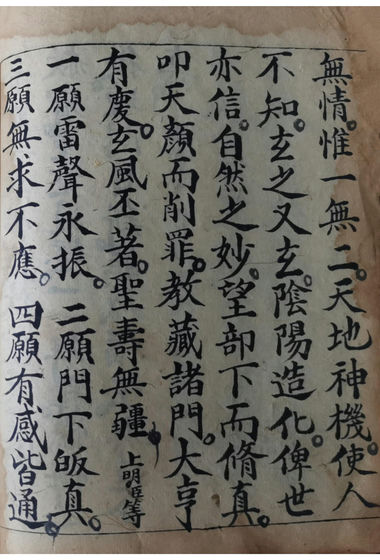 無情。惟一無二。天地神機。使人
不知。玄之又玄。陰陽造化。俾世
亦信。自然之妙。望部下而脩真。
叩天顏而削罪。教藏諸門。大亨
有慶。玄風丕著。聖壽無疆。上明臣等
一願雷聲永振。二願門下皈真。
三願無求不應。四願有感皆通。